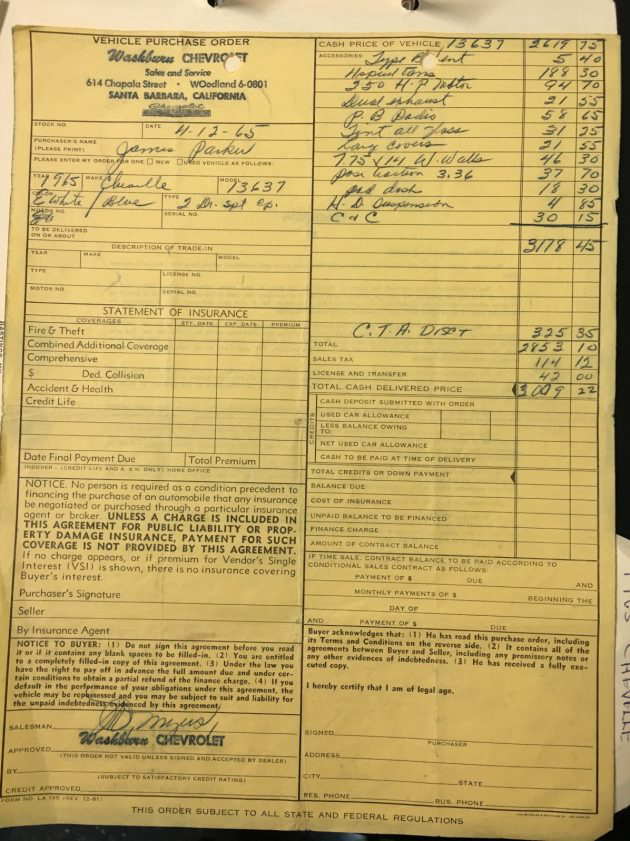 VEHICLE PURCHASE ORDER
Washburn CHEVROLET
Sales and Service
614 Chapala Street • Woodland 6-0801
SANTA BARBARA, CALIFORNIA
STOCK NO.
DATE 4-12-65
PURCHASER'S NAME
(PLEASE PRINT) James Parker
PLEASE ENTER MY ORDER FOR ONE ☐ NEW ☐ USED VEHICLE AS FOLLOWS:
YEAR 1965 MAKE Chevelle MODEL 13637
COLOR E White / Blue TYPE 2 Dr. Spt Cp.
MOTOR NO. SERIAL NO.
TO BE DELIVERED
ON OR ABOUT
DESCRIPTION OF TRADE-IN
YEAR MAKE MODEL
TYPE LICENSE NO.
MOTOR NO. SERIAL NO.
STATEMENT OF INSURANCE
COVERAGES EFF. DATE EXP. DATE PREMIUM
Fire & Theft
Combined Additional Coverage
Comprehensive
$ Ded. Collision
Accident & Health
Credit Life
Date Final Payment Due Total Premium
INSURER - (CREDIT LIFE AND A. & H. ONLY) HOME OFFICE
NOTICE. No person is required as a condition precedent to
financing the purchase of an automobile that any insurance
be negotiated or purchased through a particular insurance
agent or broker. UNLESS A CHARGE IS INCLUDED IN
THIS AGREEMENT FOR PUBLIC LIABILITY OR PROP-
ERTY DAMAGE INSURANCE, PAYMENT FOR SUCH
COVERAGE IS NOT PROVIDED BY THIS AGREEMENT.
If no charge appears, or if premium for Vendor's Single
Interest (VSI) is shown, there is no insurance covering
Buyer's interest.
Purchaser's Signature
Seller
By Insurance Agent
NOTICE TO BUYER: (1) Do not sign this agreement before you read
it or if it contains any blank spaces to be filled-in. (2) You are entitled
to a completely filled-in copy of this agreement. (3) Under the law you
have the right to pay off in advance the full amount due and under cer-
tain conditions to obtain a partial refund of the finance charge. (4) If you
default in the performance of your obligations under this agreement, the
vehicle may be repossessed and you may be subject to suit and liability for
the unpaid indebtedness evidenced by this agreement.
SALESMAN
Washburn CHEVROLET
APPROVED
(THIS ORDER NOT VALID UNLESS SIGNED AND ACCEPTED BY DEALER)
BY
(SUBJECT TO SATISFACTORY CREDIT RATING)
CREDIT APPROVED
FORM NO. LA 195 (REV. 12-61)
CASH PRICE OF VEHICLE 13637 2619 75
ACCESSORIES Type B Vent 5 40
188 30
350 H.P Motor 94 70
Dual exhaust 21 55
P.B Radio 58 65
Tint all glass 31 25
covers 21 55
7.75 x 14 W. Walls 46 30
Posi traction 3.36 37 70
pad dash 18 30
H. D. Suspension 4 85
C & C 30 15
3178 45
C.T.A. Disct 325 35
TOTAL 2853 10
SALES TAX 114 12
LICENSE AND TRANSFER 42 00
TOTAL CASH DELIVERED PRICE 3,009 22
CREDITS
CASH DEPOSIT SUBMITTED WITH ORDER
USED CAR ALLOWANCE
LESS BALANCE OWING
TO:
NET USED CAR ALLOWANCE
CASH TO BE PAID AT TIME OF DELIVERY
TOTAL CREDITS OR DOWN PAYMENT
BALANCE DUE
COST OF INSURANCE
UNPAID BALANCE TO BE FINANCED
FINANCE CHARGE
AMOUNT OF CONTRACT BALANCE
IF TIME SALE, CONTRACT BALANCE TO BE PAID ACCORDING TO
CONDITIONAL SALES CONTRACT AS FOLLOWS
PAYMENT OF $ DUE AND
MONTHLY PAYMENTS OF $ BEGINNING THE
DAY OF
AND PAYMENT OF $ DUE
Buyer acknowledges that: (1) He has read this purchase order, including
its Terms and Conditions on the reverse side. (2) It contains all of the
agreements between Buyer and Seller, including any promissory notes or
any other evidences of indebtedness. (3) He has received a fully exe-
cuted copy.
I hereby certify that I am of legal age.
SIGNED
PURCHASER
ADDRESS
CITY STATE
RES. PHONE BUS. PHONE
THIS ORDER SUBJECT TO ALL STATE AND FEDERAL REGULATIONS
1965 CHEVELLE